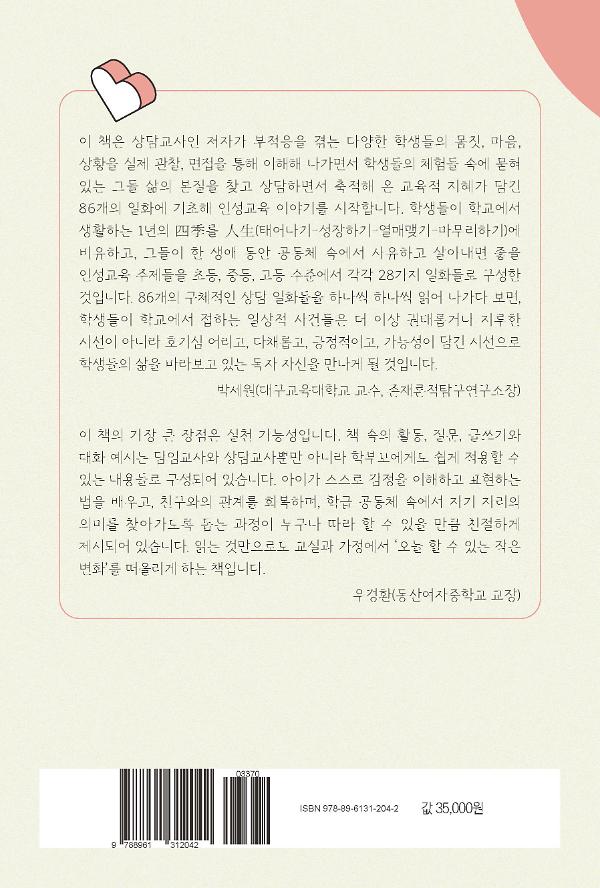 이 책은 상담교사인 저자가 부적응을 겪는 다양한 학생들의 몸짓, 마음,
상황을 실제 관찰, 면접을 통해 이해해 나가면서 학생들의 체험들 속에 묻혀
있는 그들 삶의 본질을 찾고 상담하면서 축적해 온 교육적 지혜가 담긴
86개의 일화에 기초해 인성교육 이야기를 시작합니다. 학생들이 학교에서
생활하는 1년의 四季를 人生(태어나기-성장하기-열매맺기-마무리하기)에
비유하고, 그들이 한 생애 동안 공동체 속에서 사유하고 살아내면 좋을
인성교육 주제들을 초등, 중등, 고등 수준에서 각각 28가지 일화들로 구성한
것입니다. 86개의 구체적인 상담 일화들을 하나씩 하나씩 읽어 나가다 보면,
학생들이 학교에서 접하는 일상적 사건들은 더 이상 권태롭거나 지루한
시선이 아니라 호기심 어리고, 다채롭고, 긍정적이고, 가능성이 담긴 시선으로
학생들의 삶을 바라보고 있는 독자 자신을 만나게 될 것입니다.
박세원(대구교육대학교 교수, 존재론적탐구연구소장)
이 책의 가장 큰 장점은 실천 가능성입니다. 책 속의 활동, 질문, 글쓰기와
대화 예시는 담임교사와 상담교사뿐만 아니라 학부모에게도 쉽게 적용할 수
있는 내용들로 구성되어 있습니다. 아이가 스스로 감정을 이해하고 표현하는
법을 배우고, 친구와의 관계를 회복하며, 학급 공동체 속에서 자기 자리의
의미를 찾아가도록 돕는 과정이 누구나 따라 할 수 있을 만큼 친절하게
제시되어 있습니다. 읽는 것만으로도 교실과 가정에서 ‘오늘 할 수 있는 작은
변화’를 떠올리게 하는 책입니다.
우경환(동산여자중학교 교장)
03370
ISBN 978-89-6131-204-2
값 35,000원
9 788961 312042